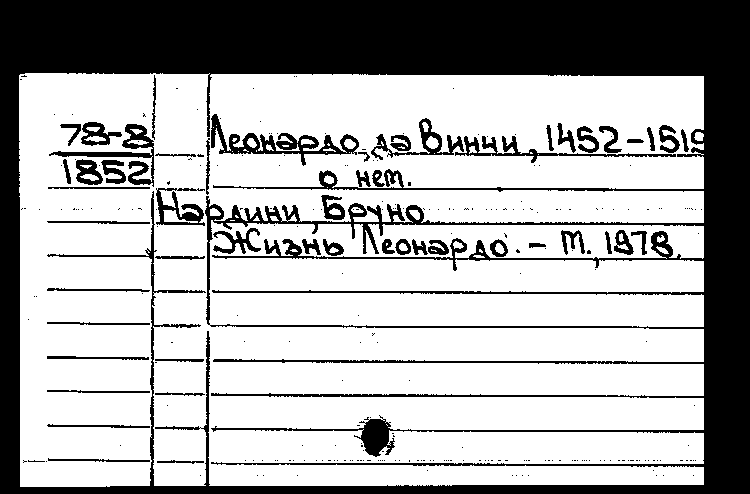 78-8
1852
Леонардо да Винчи, 1452-1519
о нем.
Нардини, Бруно.
Жизнь Леонардо. - М., 1978.